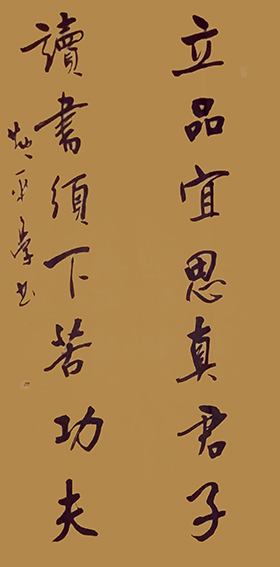 立品宜思真君子
讀書須下苦功夫